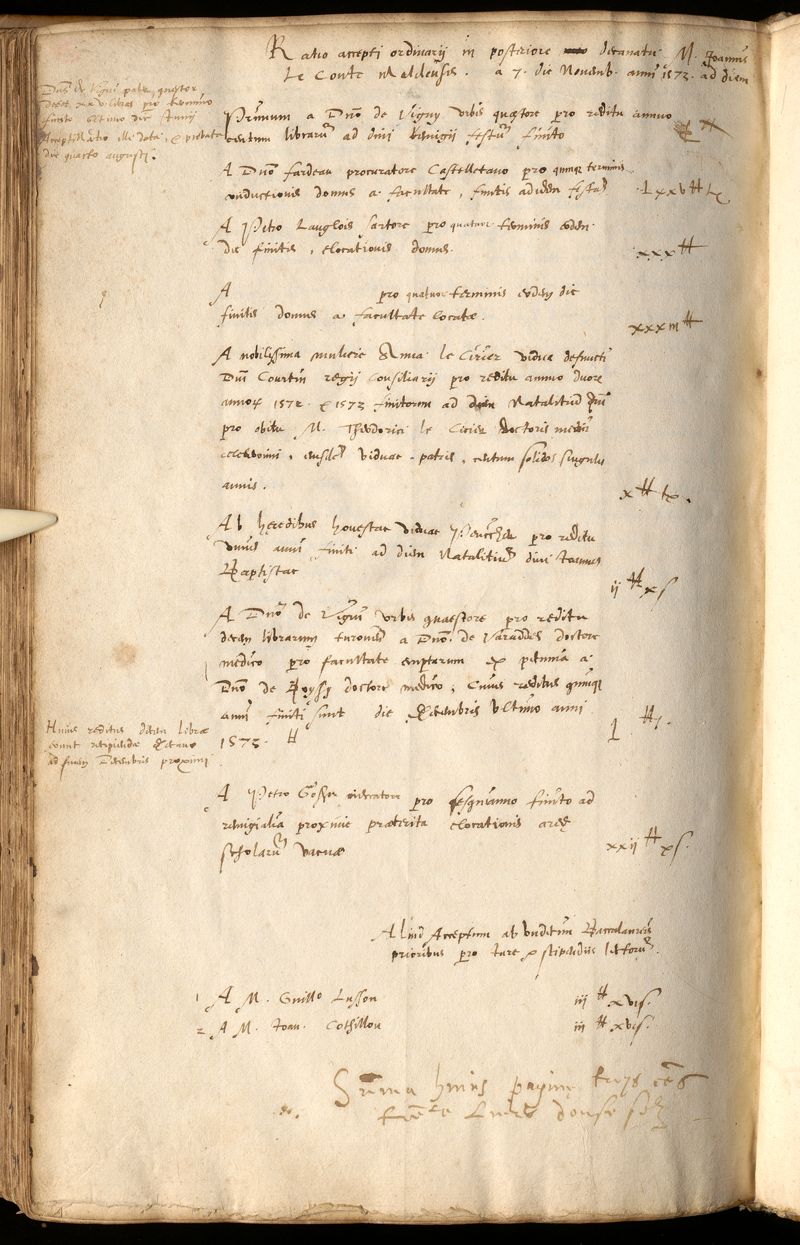 Ratio accepti ordinarij in posteriore decanatu M. Joannis
Le Conte Meldensis. a 7. die Novemb. anni 1572. ad diem
Dns de Vigni pater quaestor
pro termino
finito ultimo die Junij
Acceptilatio illi data, & probata
die quarto augusti.
Primum a Dno de Vigny urbis quaestore pro reditu annuo
centum librarũ ad divi Remigij festũ finito
A Dno fardeau procuratore Castelletano pro quinque terminis
conductionis domus a facultate, finitis ad
lxxv ₶ tz
A Petro Langlois sartore pro quatuor terminis eodem
die finitis, elocationis domus.
xxx ₶
A pro quatuor terminis eodem die
finitis domus a facultate locatae.
xxxiij ₶
A nobilissima muliere Anna le Cirier vidua defuncti
Dni Courtin regij consiliarij pro reditu annuo duorũ
annorũ 1572. & 1573 finitorum ad diem Natalitiũ Dni
pro obitu M. Theodorici le Cirier doctoris medici
eiusdẽ viduae patris, centum solidos singulis
annis.
x ₶ tz.
Ab heredibus honestae viduae pro reditu
unius anni finiti ad diem Natalitiũ divi Joannis
Baptistae
ij ₶ x s
A Dno de Vigni urbis quaestore pro reditu
decem librarum turonẽ a Dno. de Varades doctore
medico pro facultate emptarum ex pecunia a
Dno de Poyssy doctore medico, cuius reditus quinque
anni finiti sunt die Decembris ultimo anni
1573. ₶
l ₶.
Huius reditus decem librae
erunt recipiendae
ad finem Decembris proximi
A Petro mercatore pro sesquianno finito ad
remigialia proxime praeterita elocationis areae
scholarũ vacuae
xxij ₶ x s.
Aliud Acceptum ab unditim Baccalaureis
prioribus pro iure & stipendiis lectorũ.
1 A M. Guillo Lusson iij ₶ xv s.
2 A M. Joan. Cothillon iij ₶ xv s.
Suma huius pagine troys cẽs
trẽte livres douse solz